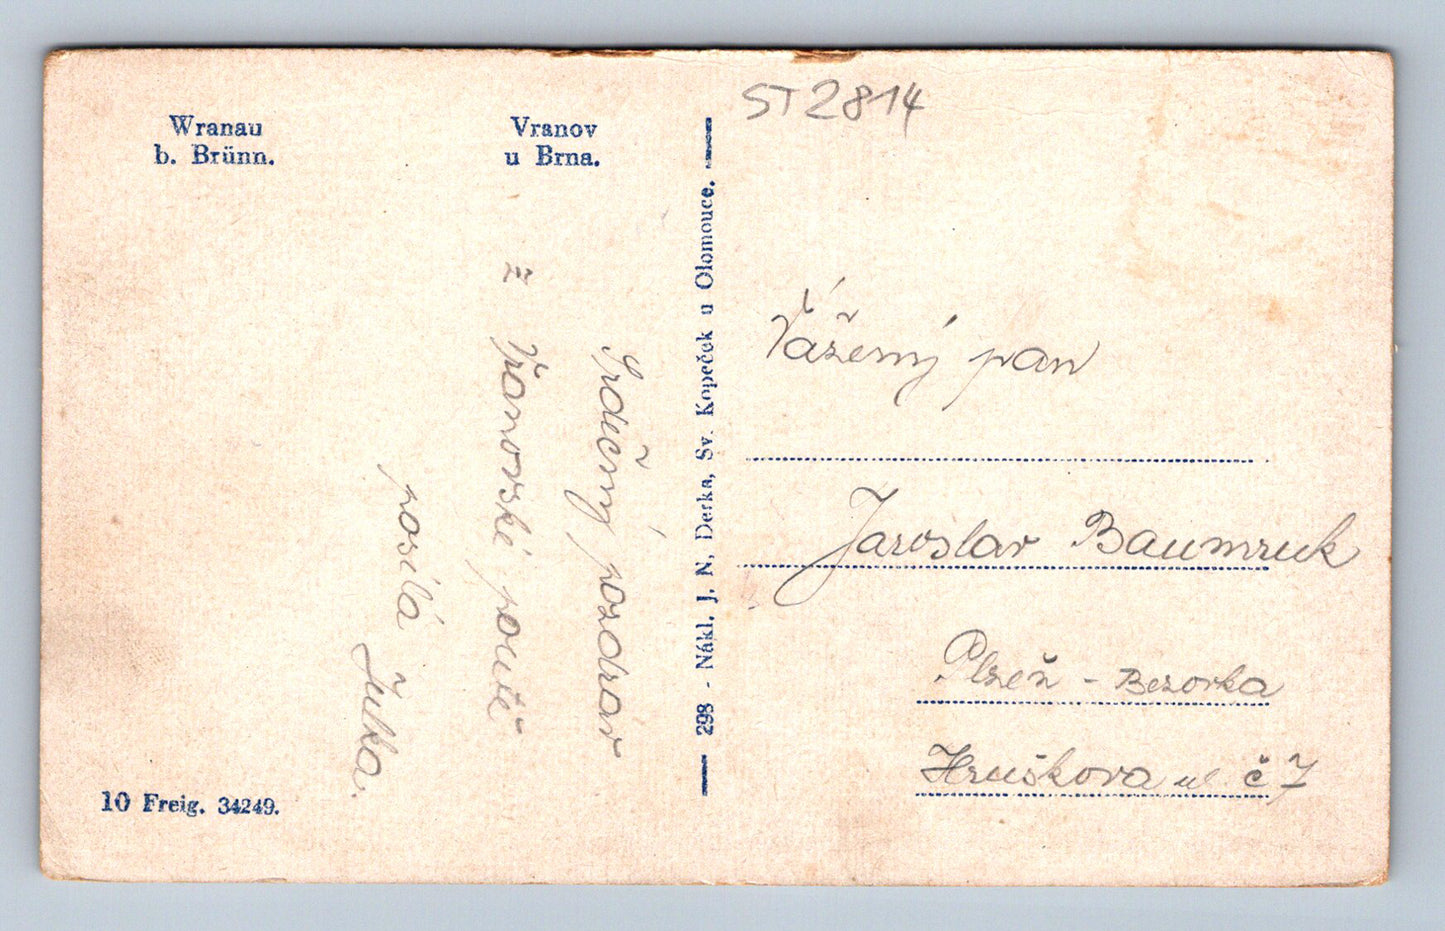 Wranau
b. Brünn.
Vranov
u Brna.
ST 2814
Srdečný pozdrav
z
Vranovské poutě
posílá
Jutka.
10 Freig. 34249.
298 - Nákl. J. N. Derka, Sv. Kopeček u Olomouce.
Vážený pan
Jaroslav Baumruk
Plzeň - Bezovka
Hruškova ul č 7